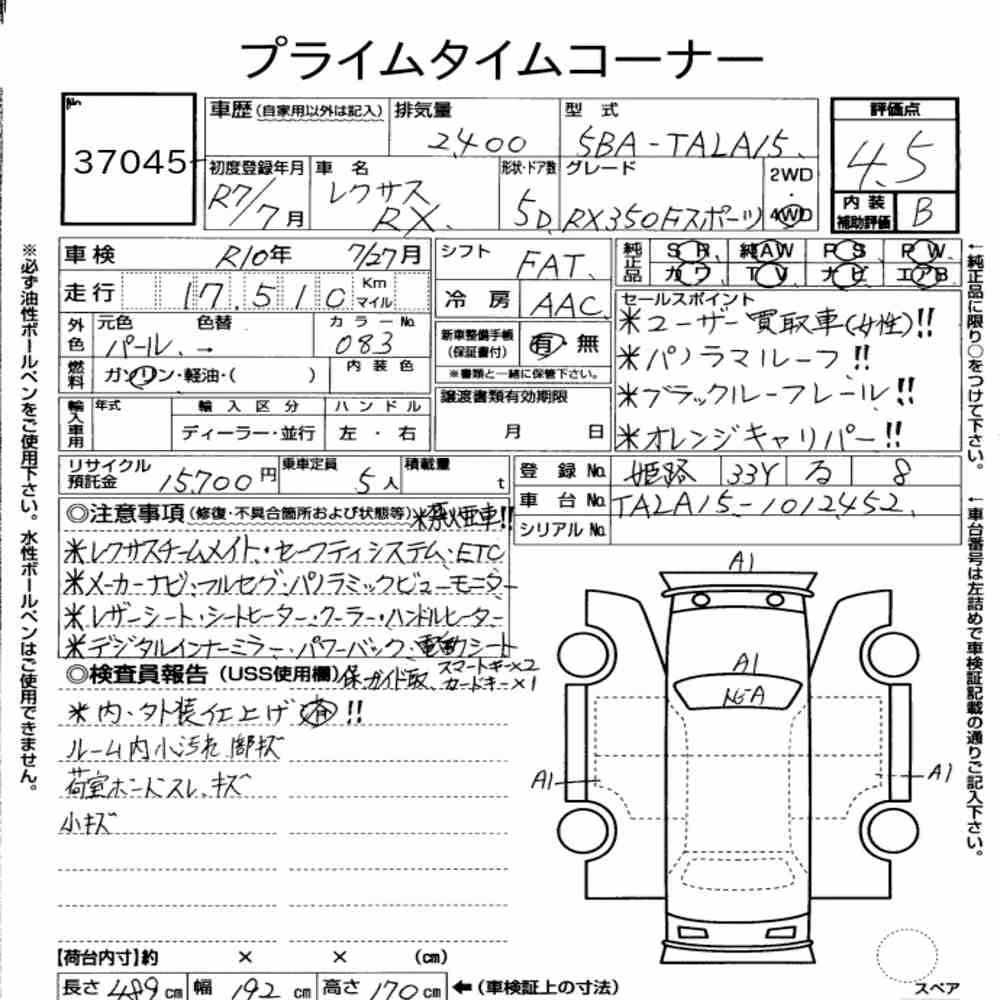 プライムタイムコーナー
No.
37045
車歴(自家用以外は記入)
排気量
2,400
型式
5BA-TALA15
評価点
4.5
初度登録年月
R7/7月
車名
レクサス
RX
形状・ドア数
5D
グレード
RX350Fスポーツ
2WD
・
4WD
内装
補助評価
B
車検
R10年 7/27月
走行
17,510
Km
マイル
シフト
FAT
冷房
AAC
純正品
SR 純AW PS PW
カワ TV ナビ エアB
外色
元色 色替
パール →
カラーNo.
083
燃料
ガソリン・軽油・( )
内装色
新車整備手帳
(保証書付)
有・無
※書類と一緒に保管下さい。
セールスポイント
*ユーザー買取車(女性)!!
*パノラマルーフ!!
*ブラックルーフレール!!
*オレンジキャリパー!!
輸入車用
年式
輸入区分
ディーラー・並行
ハンドル
左・右
譲渡書類有効期限
月 日
リサイクル
預託金
15,700円
乗車定員
5人
積載量
t
登録No.
姫路 33Y る 8
車台No.
TALA15-1012452
シリアルNo.
◎注意事項(修復・不具合箇所および状態等)*禁煙車!!
*レクサスチームメイト・セーフティシステム、ETC
*メーカーナビ・フルセグ・パノラミックビューモニター
*レザーシート・シートヒーター・クーラー・ハンドルヒーター
*デジタルインナーミラー・パワーバック、電動シート
◎検査員報告(USS使用欄)
保・ガイド・取、スマートキー×2
カードキー×1
*内・外装仕上げ済!!
ルーム内小汚れ
荷室ボードスレ、キズ
小キズ
A1
A1
A1
A1
【荷台内寸】約 × × (cm)
長さ 489cm 幅 192cm 高さ 170cm ←(車検証上の寸法)
スペア
※必ず油性ボールペンをご使用下さい。水性ボールペンはご使用できません。
←純正品に限り○をつけて下さい。
←車台番号は左詰めで車検証記載の通りご記入下さい。